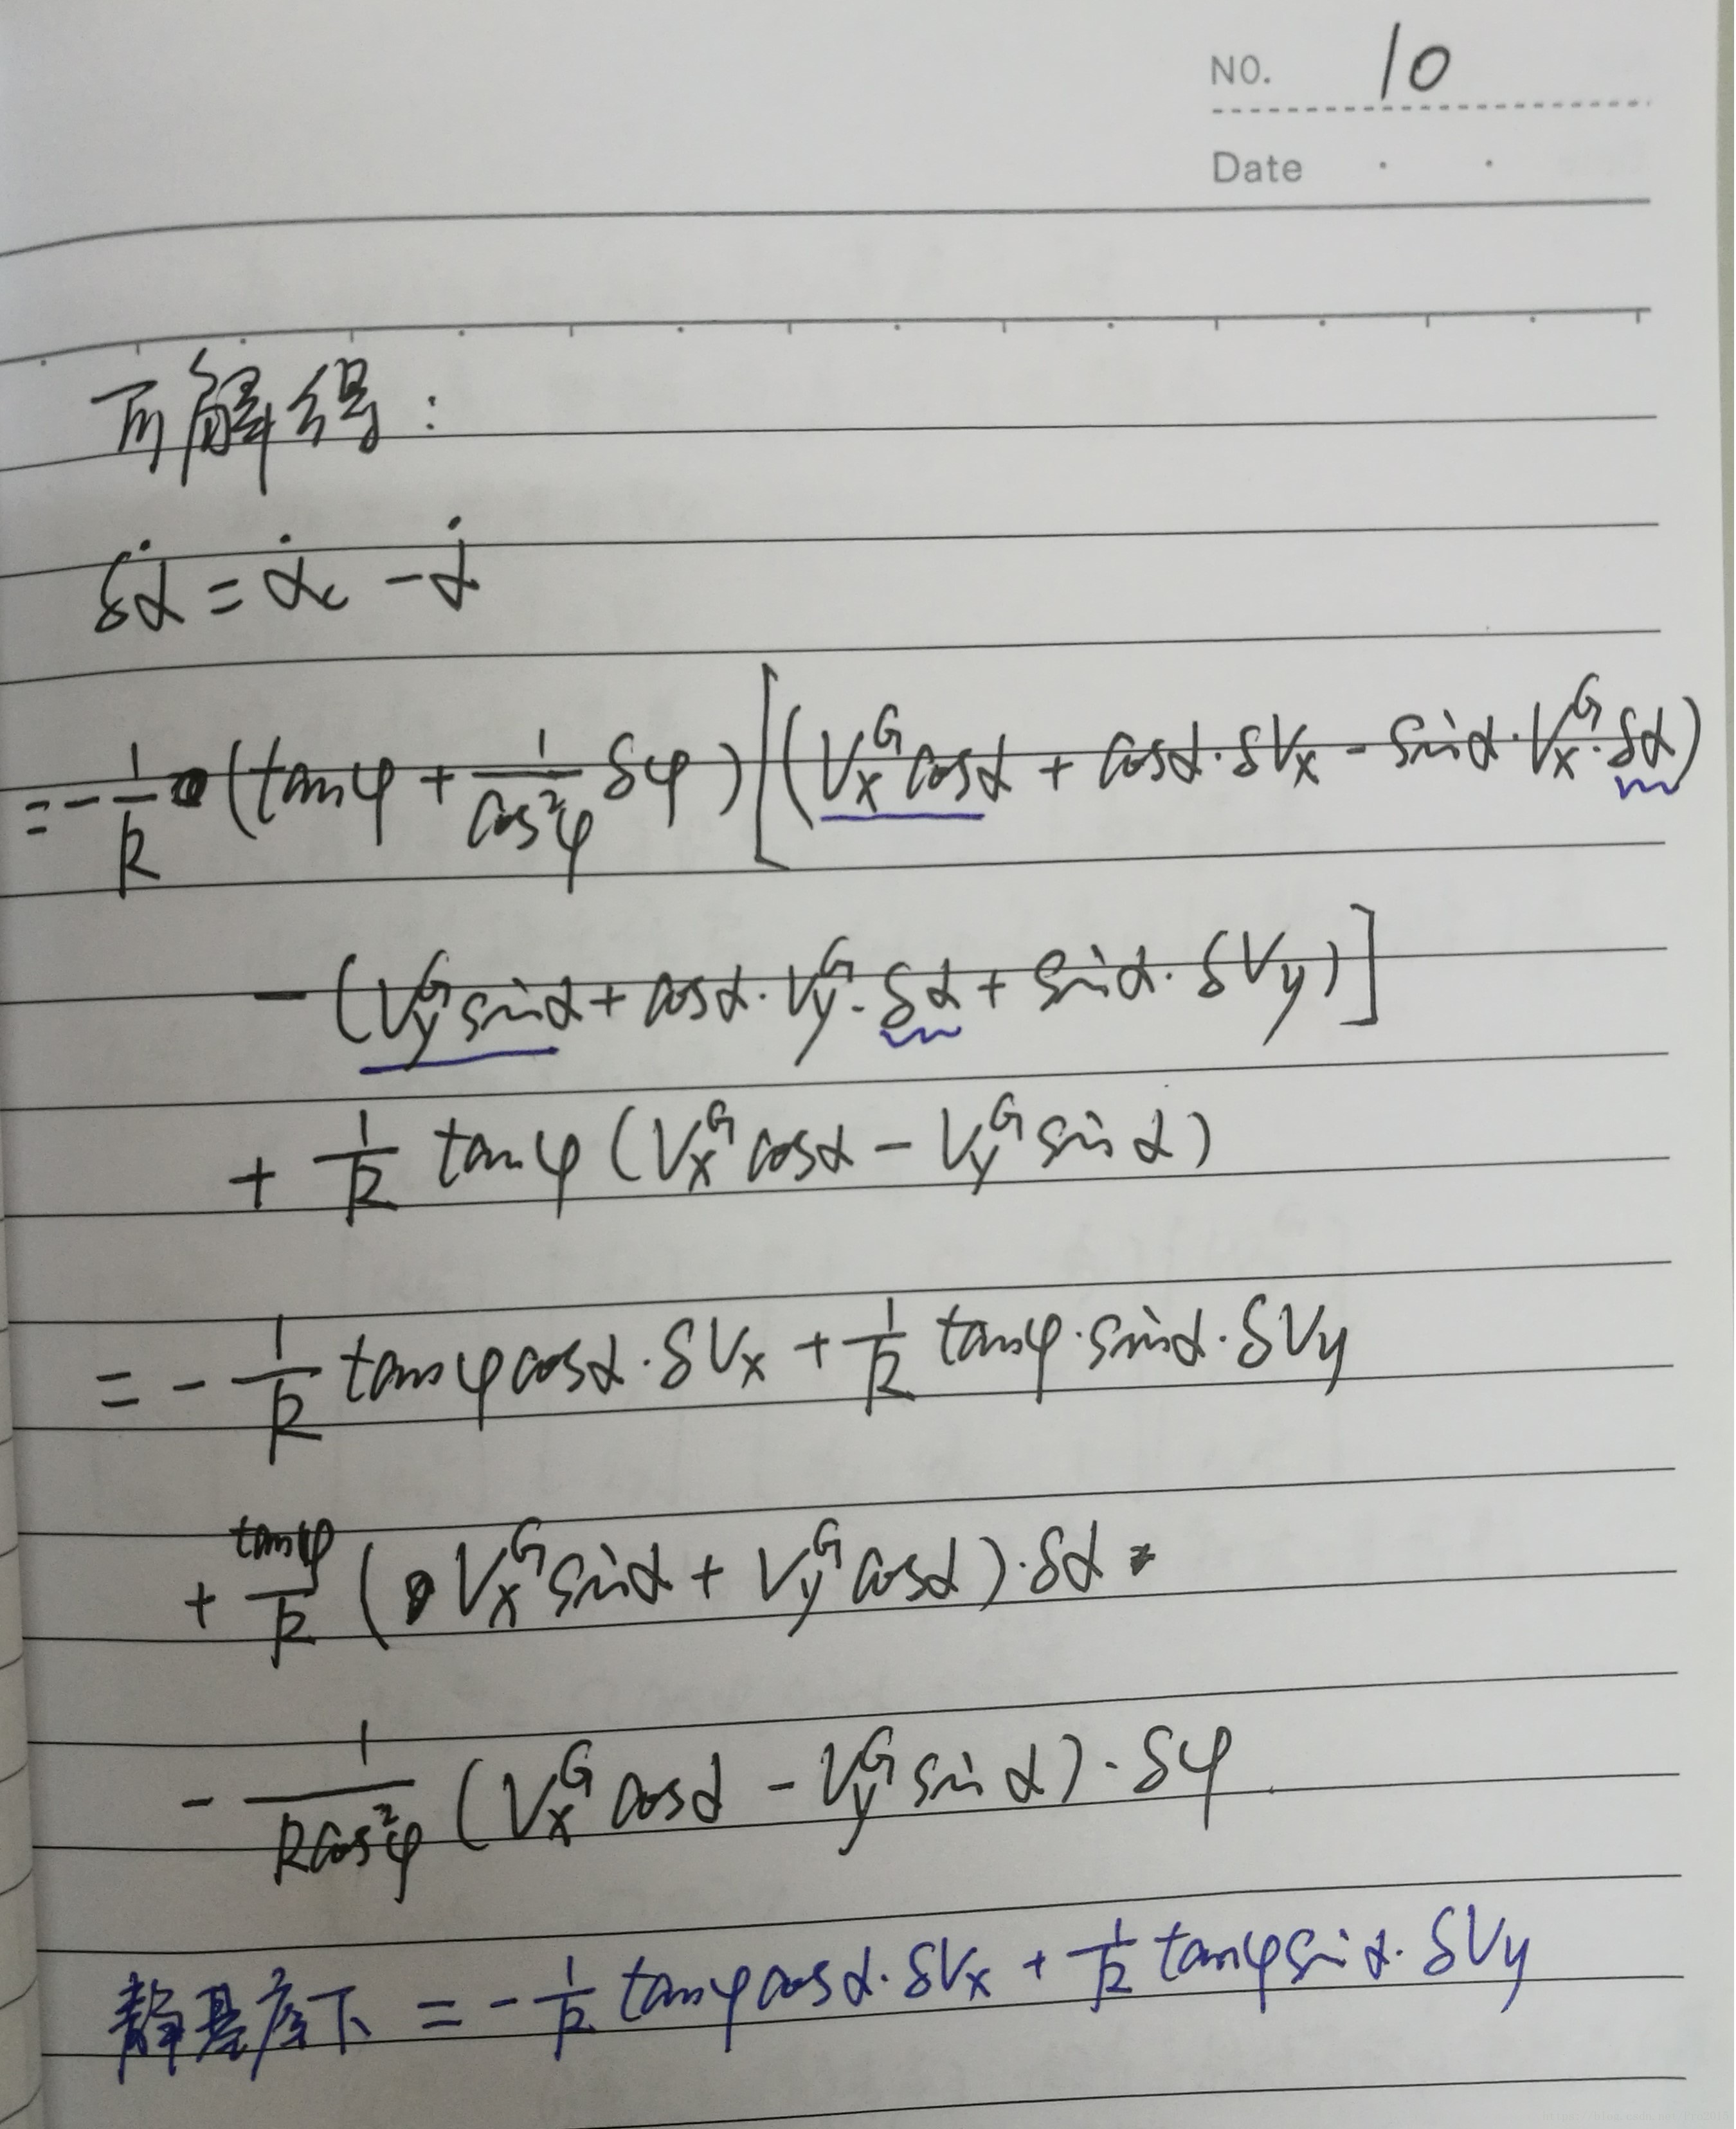 NO. 10
Date
可解得:
δα̇ = α̇c - α̇
= -1/R (tanφ + 1/cos²φ δφ)[(Vx^G cosα + cosα·δVx - sinα·Vx^G·δα)
- (Vy^G sinα + cosα·Vy^G·δα + sinα·δVy)]
+ 1/R tanφ (Vx^G cosα - Vy^G sinα)
= -1/R tanφ cosα·δVx + 1/R tanφ·sinα·δVy
+ tanφ/R (Vx^G sinα + Vy^G cosα)·δα
- 1/(R cos²φ) (Vx^G cosα - Vy^G sinα)·δφ
静基座下 = -1/R tanφ cosα·δVx + 1/R tanφ sinα·δVy